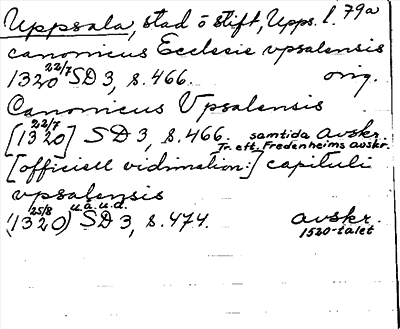 Uppsala, stad o stift, Upps. l. 79a
canonicus Ecclecie vpsalensis
1320 22/7 SD 3, s. 466. orig.
Canonicus Vpsalensis
[1320] 22/7 SD 3, s. 466. samtida avskr.
Tr. eft. Fredenheims avskr.
[officiell vidimation:] capituli
vpsalensis
(1320) 25/8 u.å.u.d. SD 3, s. 474. avskr.
1520-talet